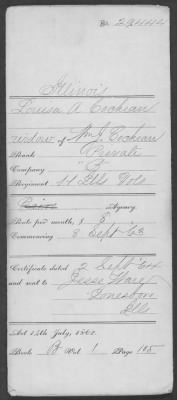 29444
Illinois
Louisa A Cochran
widow of Wm J Cochran
Rank Private
Company "C"
Regiment 11 Ills Vols
Agency
Rate per month, $ 8
Commencing 3 Sept 63
Certificate dated 2 Sept 64
and sent to Jesse Ware
Jonesboro
Ills
Act 14th July, 1862.
Book B Vol 1 Page 105